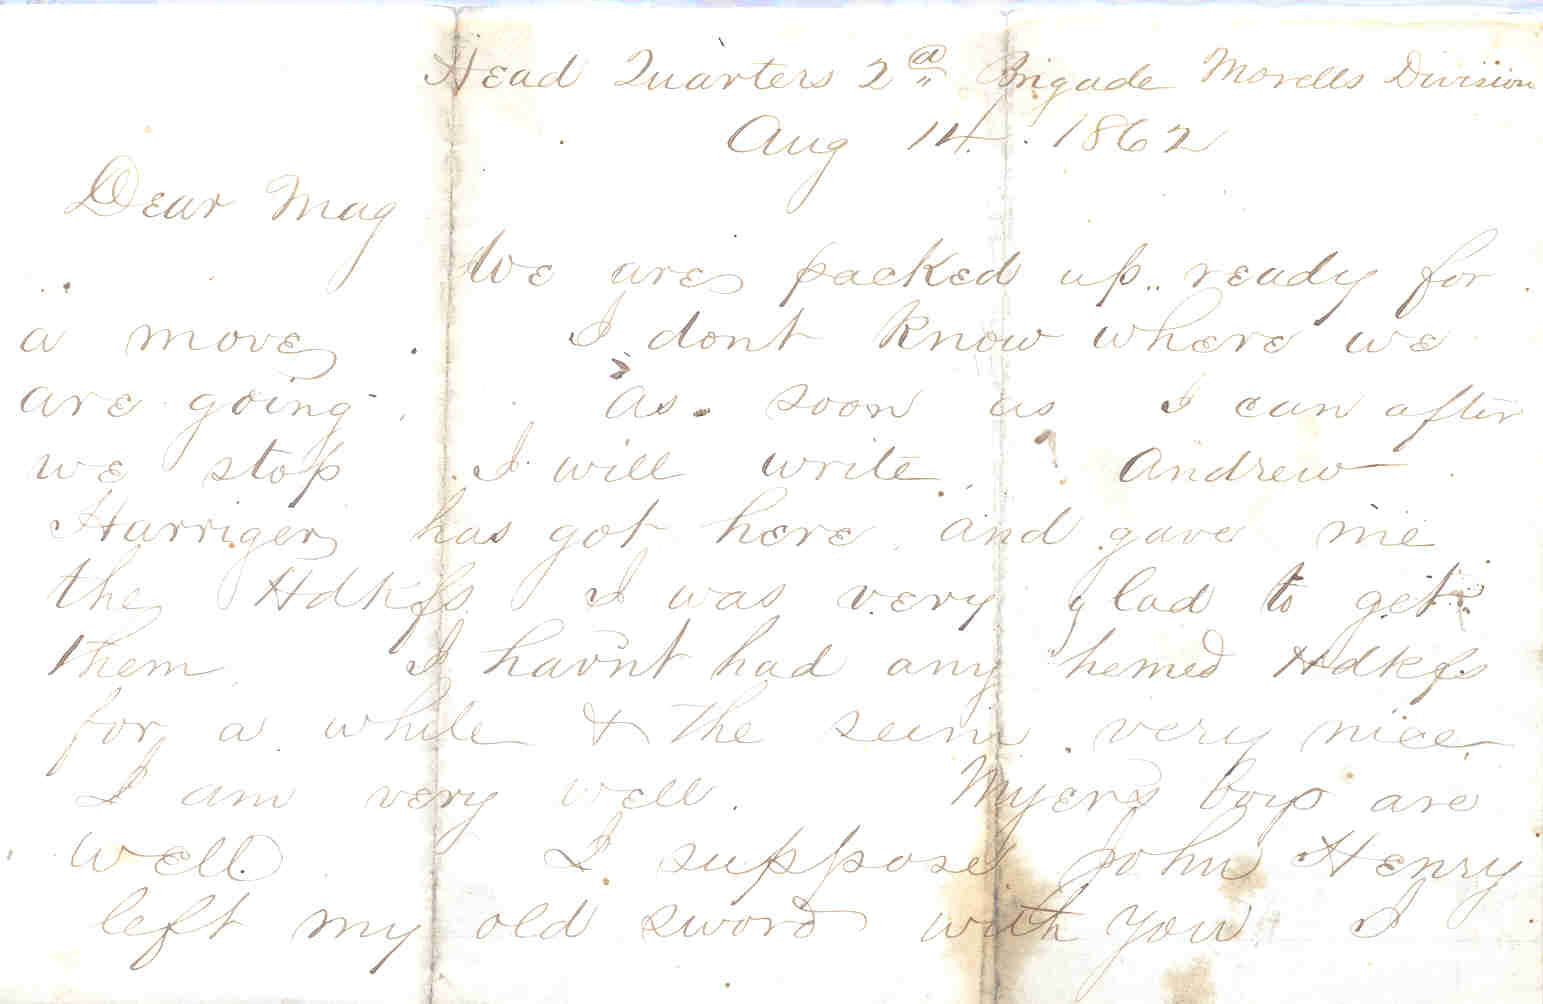 Head Quarters 2d Brigade Morells Division
Aug 14. 1862
Dear Mag
We are packed up ready for
a move. I dont know where we
are going. As soon as I can after
we stop I will write. Andrew
Harriger has got here and gave me
the Hdkfs I was very glad to get
them. I hav'nt had any hemed Hdkfs
for a while & the seem very nice
I am very well. Myers boys are
well. I suppose John Henry
left my old sword with you I